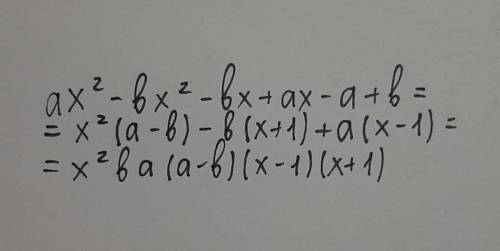 ax² - bx² - bx + ax - a + b =
= x² (a - b) - b (x + 1) + a (x - 1) =
= x² b a (a - b) (x - 1) (x + 1)